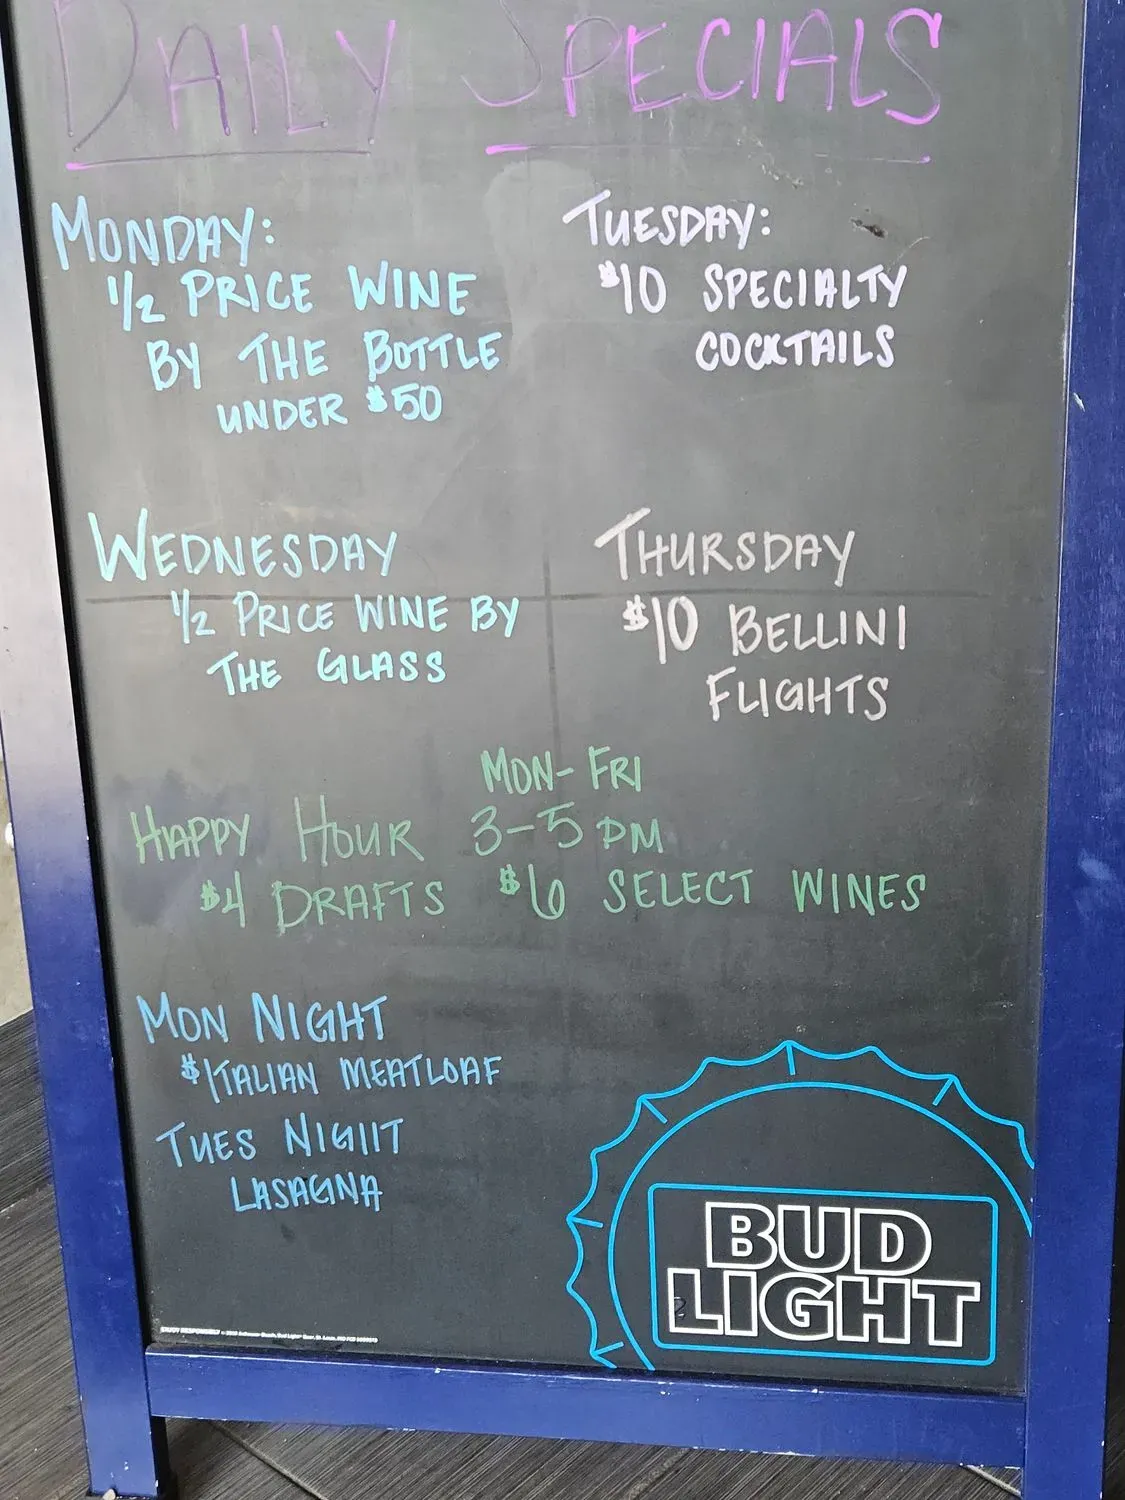 DAILY SPECIALS
MONDAY:
1/2 PRICE WINE
BY THE BOTTLE
UNDER $50
TUESDAY:
$10 SPECIALTY
COCKTAILS
WEDNESDAY
1/2 PRICE WINE BY
THE GLASS
THURSDAY
$10 BELLINI
FLIGHTS
MON-FRI
HAPPY HOUR 3-5 PM
$4 DRAFTS $6 SELECT WINES
MON NIGHT
$ITALIAN MEATLOAF
TUES NIGHT
LASAGNA
BUD
LIGHT
ENJOY RESPONSIBLY